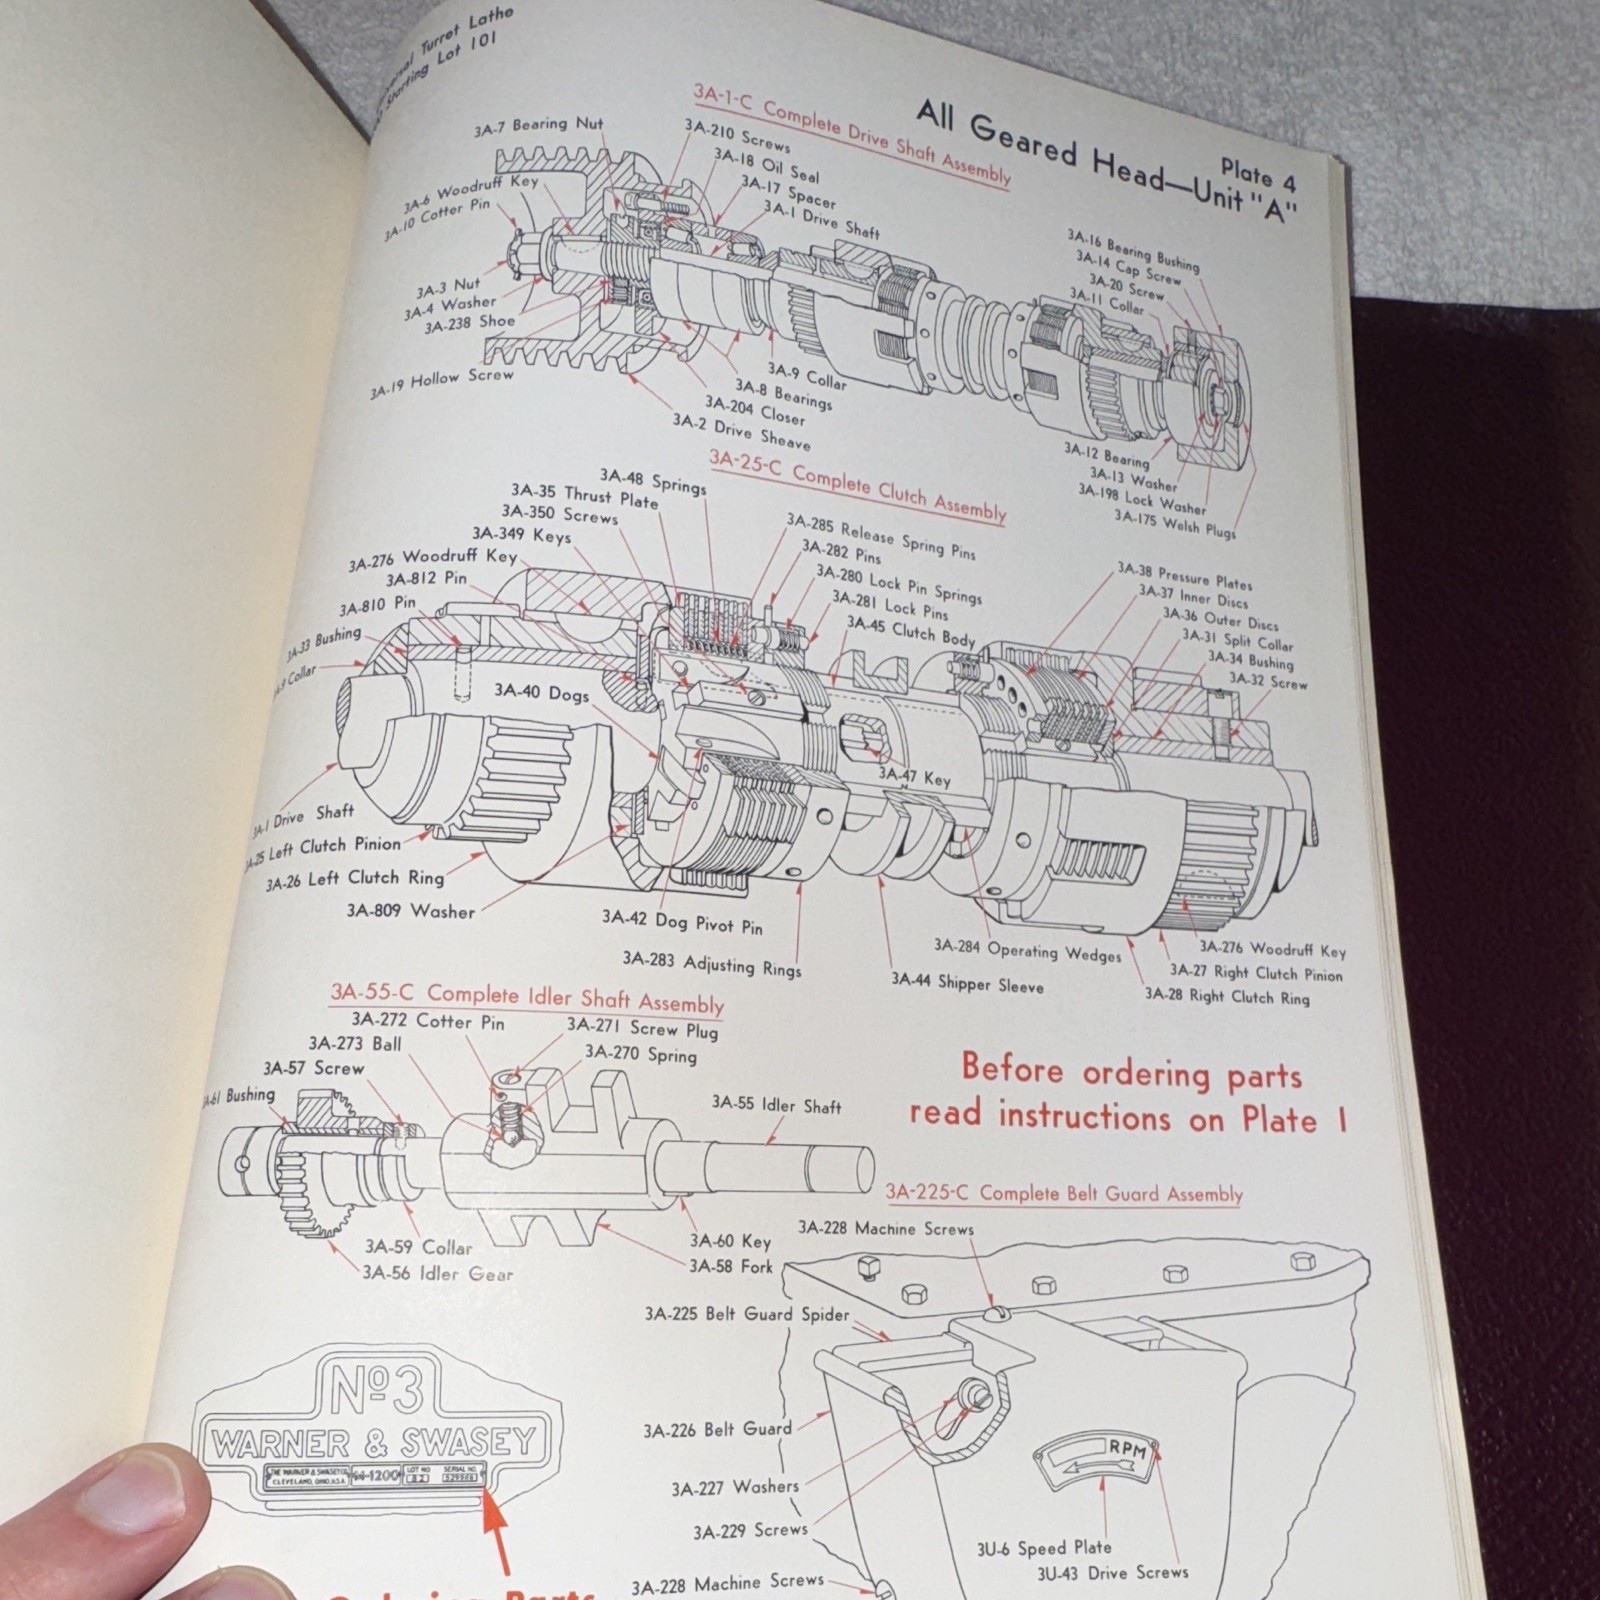 Turret Lathe
Starting Lot 101
Plate 4
All Geared Head—Unit "A"
3A-1-C Complete Drive Shaft Assembly
3A-7 Bearing Nut
3A-210 Screws
3A-18 Oil Seal
3A-17 Spacer
3A-1 Drive Shaft
3A-6 Woodruff Key
3A-10 Cotter Pin
3A-16 Bearing Bushing
3A-14 Cap Screw
3A-20 Screw
3A-11 Collar
3A-3 Nut
3A-4 Washer
3A-238 Shoe
3A-19 Hollow Screw
3A-9 Collar
3A-8 Bearings
3A-204 Closer
3A-2 Drive Sheave
3A-12 Bearing
3A-13 Washer
3A-198 Lock Washer
3A-175 Welsh Plugs
3A-25-C Complete Clutch Assembly
3A-48 Springs
3A-35 Thrust Plate
3A-350 Screws
3A-349 Keys
3A-276 Woodruff Key
3A-812 Pin
3A-810 Pin
3A-33 Bushing
Collar
3A-285 Release Spring Pins
3A-282 Pins
3A-280 Lock Pin Springs
3A-281 Lock Pins
3A-45 Clutch Body
3A-38 Pressure Plates
3A-37 Inner Discs
3A-36 Outer Discs
3A-31 Split Collar
3A-34 Bushing
3A-32 Screw
3A-40 Dogs
3A-47 Key
3A-1 Drive Shaft
3A-25 Left Clutch Pinion
3A-26 Left Clutch Ring
3A-809 Washer
3A-42 Dog Pivot Pin
3A-283 Adjusting Rings
3A-284 Operating Wedges
3A-44 Shipper Sleeve
3A-276 Woodruff Key
3A-27 Right Clutch Pinion
3A-28 Right Clutch Ring
3A-55-C Complete Idler Shaft Assembly
3A-272 Cotter Pin
3A-271 Screw Plug
3A-273 Ball
3A-270 Spring
3A-57 Screw
3A-61 Bushing
3A-55 Idler Shaft
3A-59 Collar
3A-56 Idler Gear
3A-60 Key
3A-58 Fork
Before ordering parts
read instructions on Plate 1
3A-225-C Complete Belt Guard Assembly
3A-228 Machine Screws
3A-225 Belt Guard Spider
3A-226 Belt Guard
3A-227 Washers
3A-229 Screws
3A-228 Machine Screws
RPM
3U-6 Speed Plate
3U-43 Drive Screws
No 3
WARNER & SWASEY
THE WARNER & SWASEY CO.
CLEVELAND, OHIO, U.S.A.
M-1200
LOT NO
SERIAL NO.
Ordering Parts